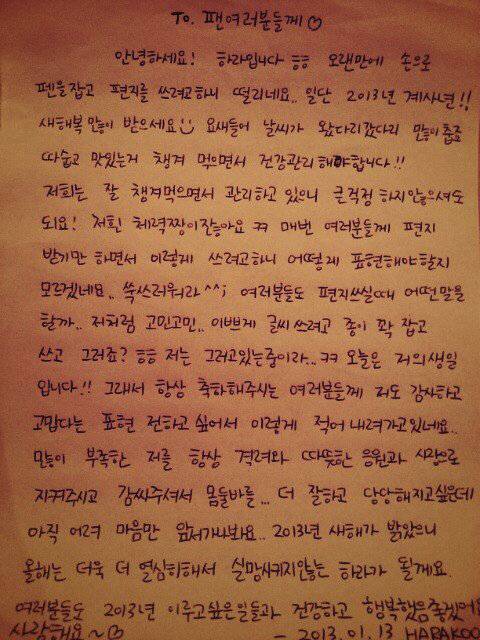 To. 팬여러분들께♡
안녕하세요! 하라입니다 ㅎㅎ 오랜만에 손으로
펜을잡고 편지를 쓰려고하니 떨리네요.. 일단 2013년 계사년!!
새해복 많이 받으세요 요새들어 날씨가 왔다리갔다리 많이춥죠
따숩고 맛있는거 챙겨 먹으면서 건강관리해야합니다!!
저희는 잘 챙겨먹으면서 관리하고 있으니 큰걱정 하지않으셔도
되요! 저흰 체력짱이잖아요 ㅋㅋ 매번 여러분들께 편지
받기만 하면서 이렇게 쓰려고하니 어떻게 표현해야할지
모르겠네요.. 쑥쓰러워라^^; 여러분들도 편지쓰실때 어떤말을
할까.. 저처럼 고민고민.. 이쁘게 글씨 쓰려고 종이 꽉 잡고
쓰고 그러죠? ㅎㅎ 저는 그러고있는중이라...ㅋㅋ 오늘은 저의생일
입니다!! 그래서 항상 축하해주시는 여러분들께 저도 감사하고
고맙다는 표현 전하고 싶어서 이렇게 적어 내려가고있네요..
많이 부족한 저를 항상 격려와 따뜻한 응원과 사랑으로
지켜주시고 감싸주셔서 몸둘바를... 더 잘하고 당당해지고싶은데
아직 어려 마음만 앞서가나봐요.. 2013년 새해가 밝았으니
올해는 더욱 더 열심히해서 실망시키지않는 하라가 될게요.
여러분들도 2013년 이루고싶은일들과 건강하고 행복했음좋겠어요
사랑해요~♡ - 2013. 01. 13 HARAKOO